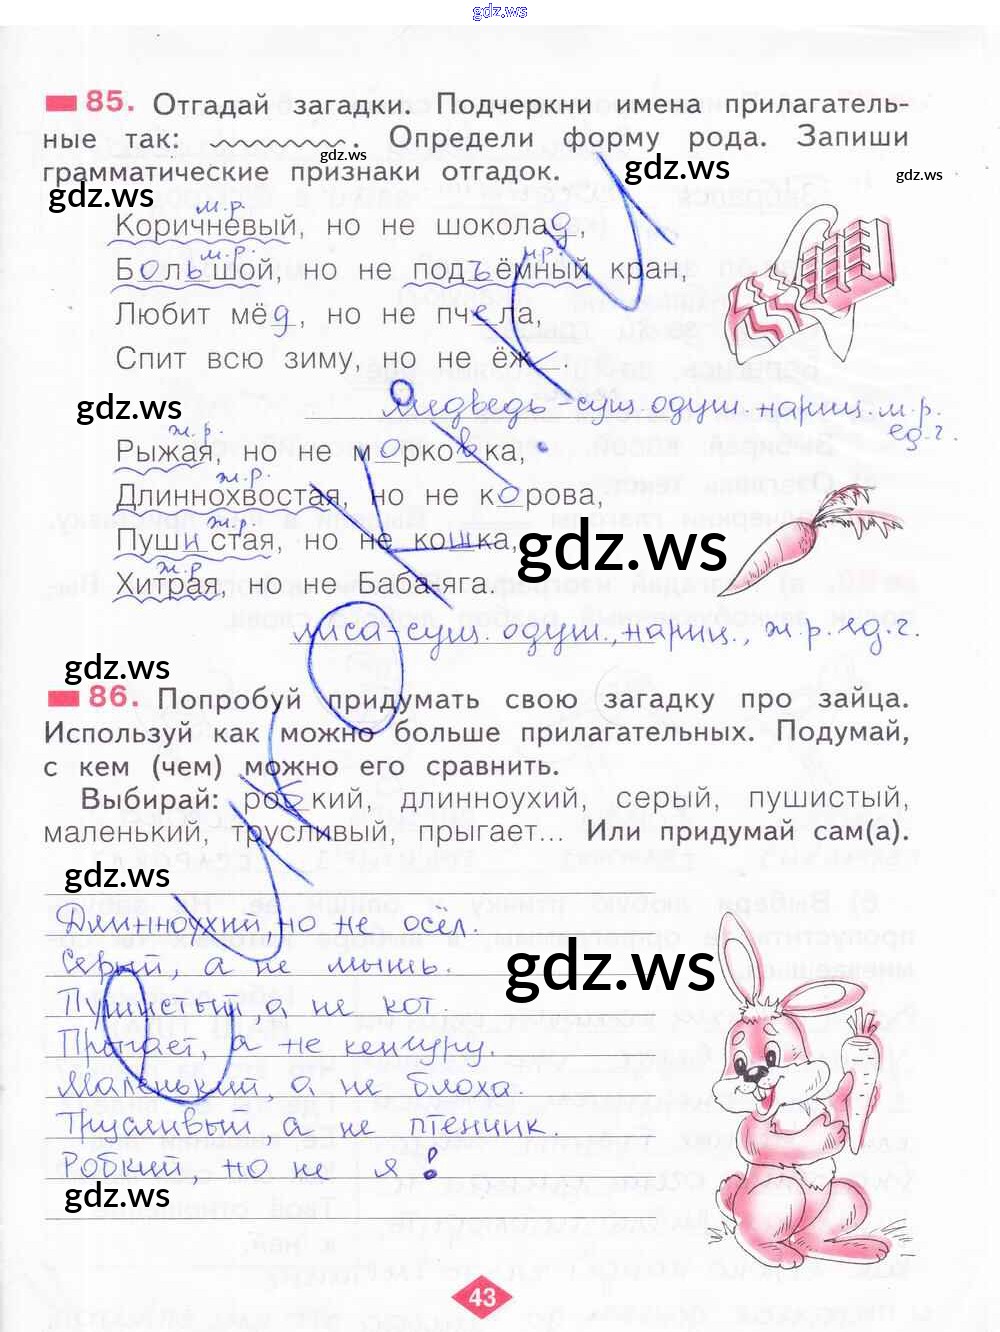 gdz.ws
85. Отгадай загадки. Подчеркни имена прилагатель-
ные так: . Определи форму рода. Запиши
gdz.ws
gdz.ws
gdz.ws
gdz.ws
грамматические признаки отгадок.
м.р.
Коричневый, но не шоколад,
м.р. м.р.
Большой, но не подъёмный кран,
Любит мёд, но не пчела,
Спит всю зиму, но не ёж
gdz.ws
медведь - сущ. одуш. нариц. м.р.
ед.ч.
ж.р.
Рыжая, но не морковка,
ж.р.
Длиннохвостая, но не корова,
ж.р.
Пушистая, но не кошка,
gdz.ws
ж.р
Хитрая, но не Баба-яга.
лиса - сущ. одуш., нариц., ж.р. ед.ч.
gdz.ws
86. Попробуй придумать свою загадку про зайца.
Используй как можно больше прилагательных. Подумай,
с кем (чем) можно его сравнить.
Выбирай: робкий, длинноухий, серый, пушистый,
маленький, трусливый, прыгает... Или придумай сам(а).
gdz.ws
Длинноухий, но не осёл.
Серый, а не мышь.
gdz.ws
Пушистый, а не кот.
Прыгает, а не кенгуру.
Маленький, а не блоха.
Трусливый а не птенчик.
Робкий, но не я!
gdz.ws
43